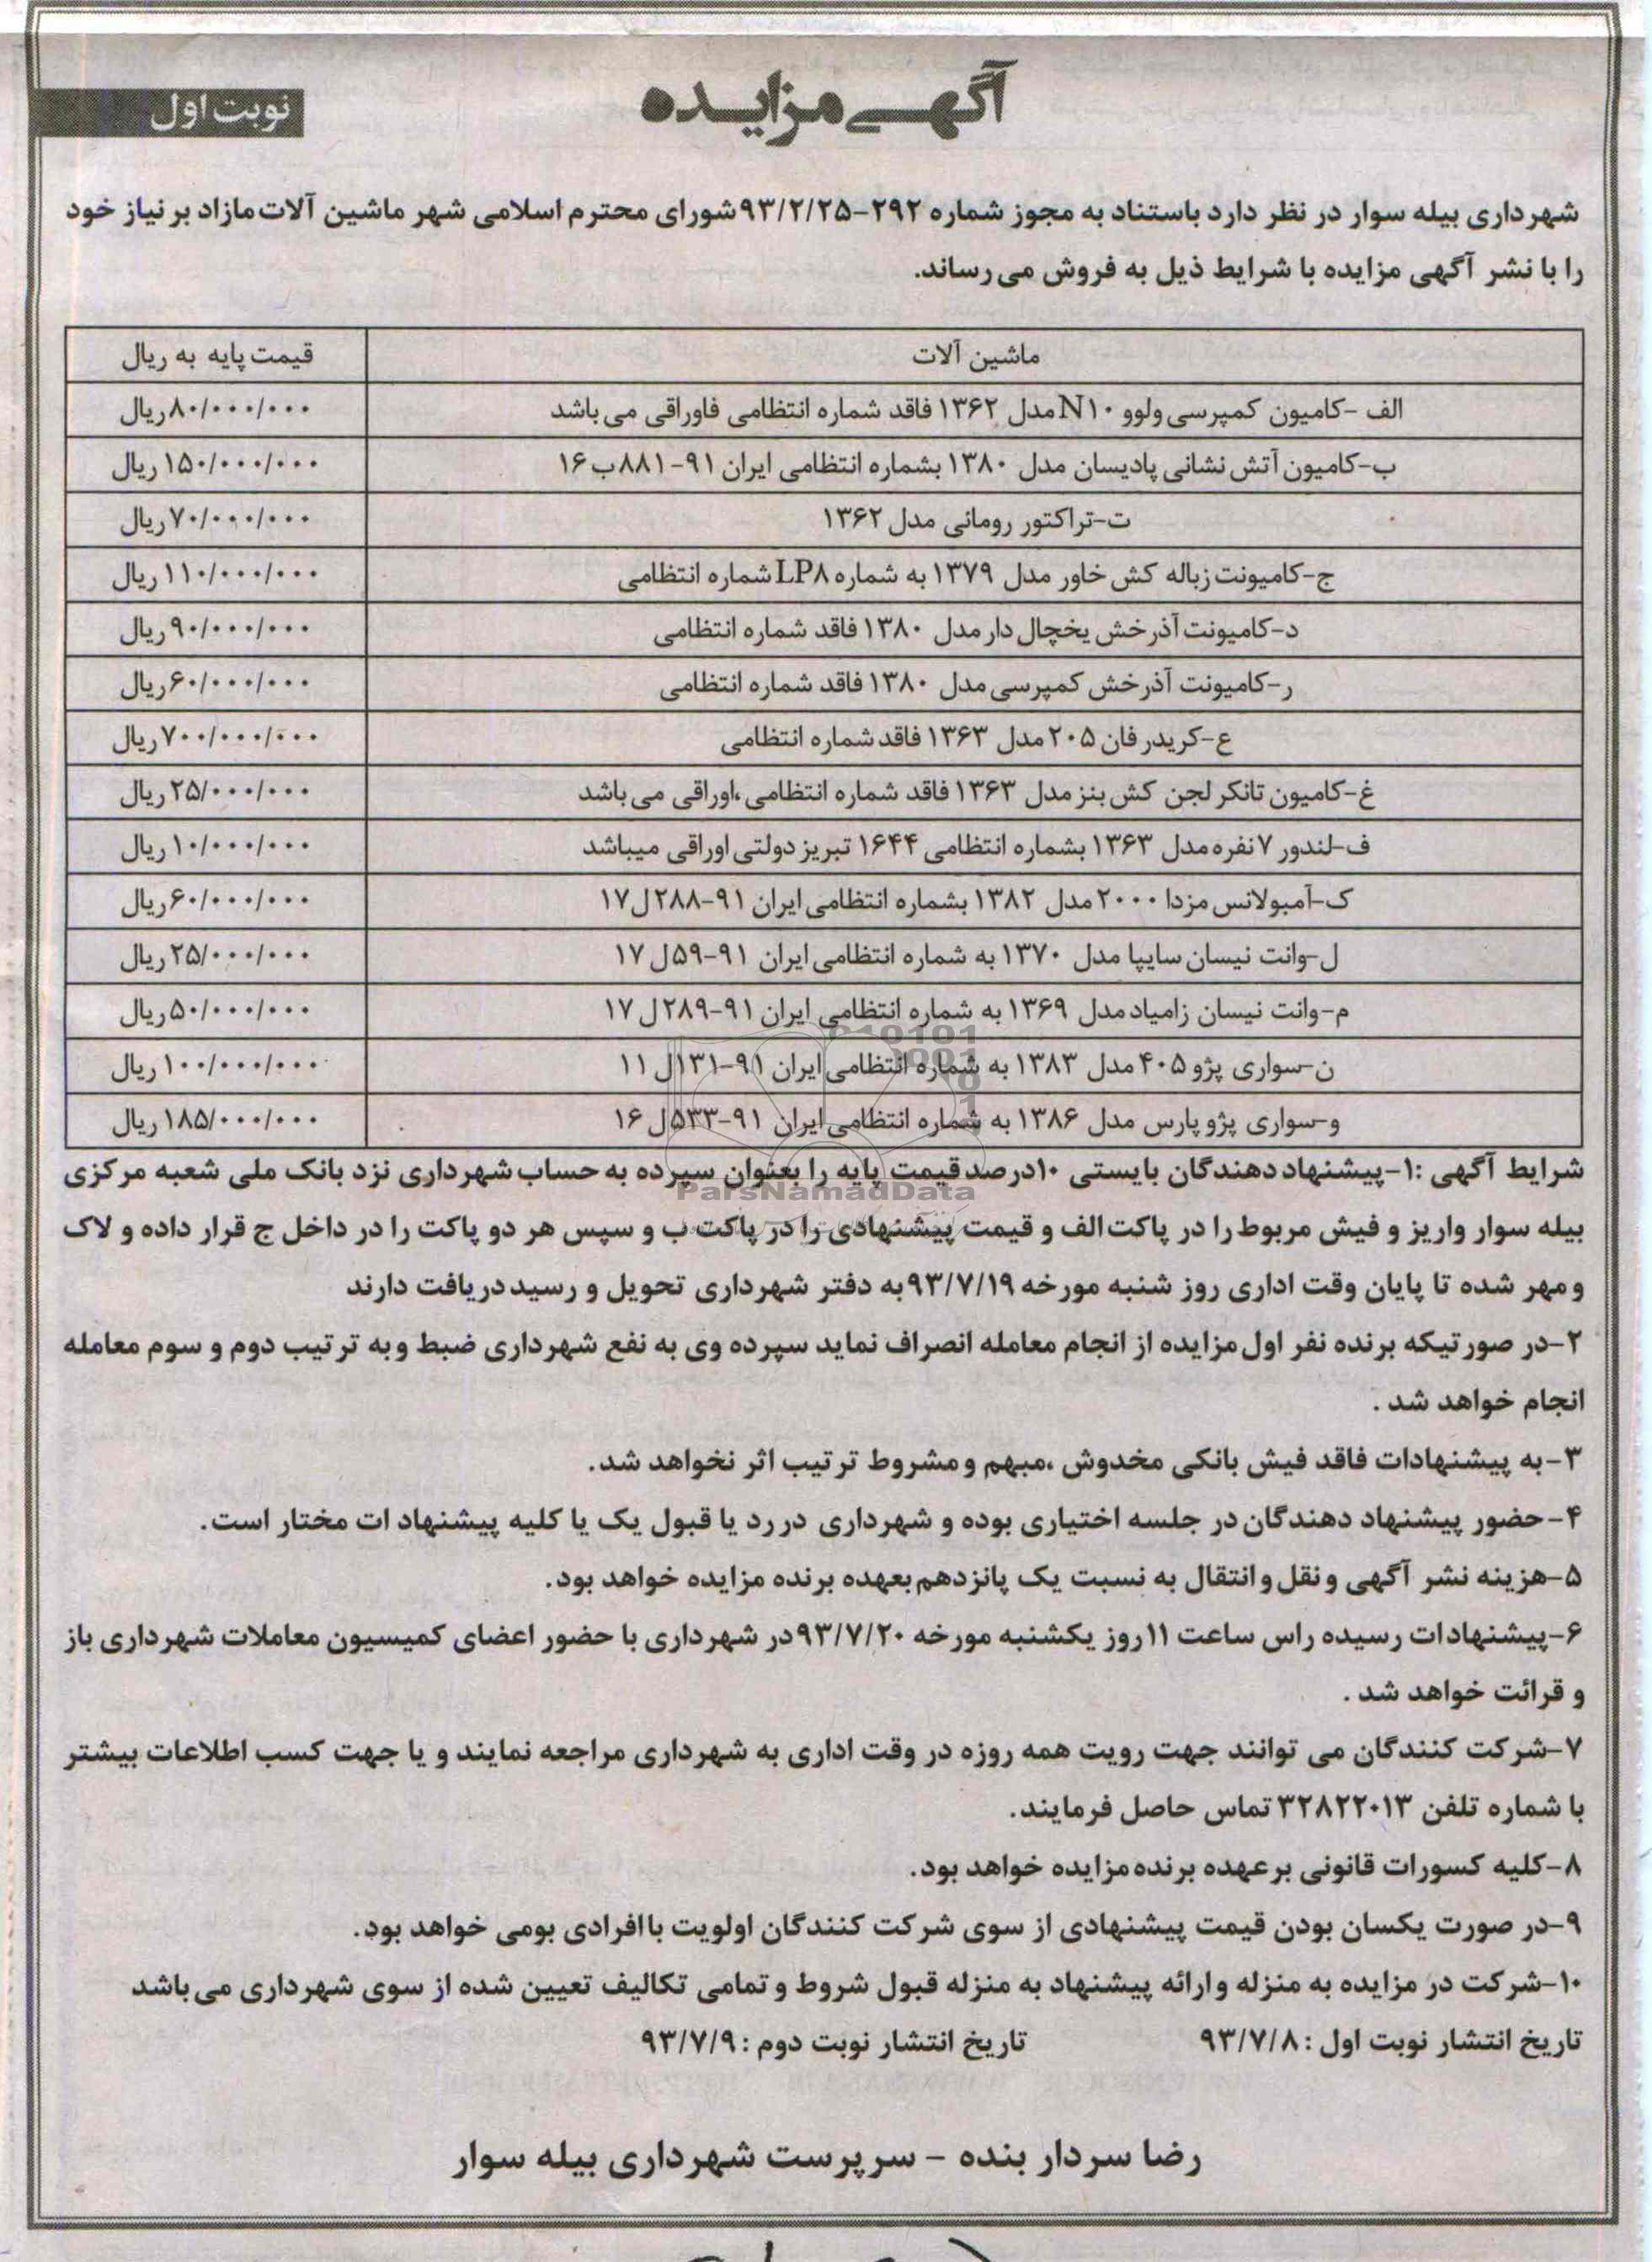 آگهی مزایده
نوبت اول
شهرداری بیله سوار در نظر دارد باستناد به مجوز شماره ۲۹۲-۹۳/۲/۲۵شورای محترم اسلامی شهر ماشین آلات مازاد بر نیاز خود
را با نشر آگهی مزایده با شرایط ذیل به فروش می رساند.
ماشین آلات قیمت پایه به ریال
الف -کامیون کمپرسی ولوو N۱۰مدل ۱۳۶۲ فاقد شماره انتظامی فاوراقی می باشد ۸۰/۰۰۰/۰۰۰ریال
ب-کامیون آتش نشانی پادیسان مدل ۱۳۸۰ بشماره انتظامی ایران ۹۱-۸۸۱ب۱۶ ۱۵۰/۰۰۰/۰۰۰ ریال
ت-تراکتور رومانی مدل ۱۳۶۲ ۷۰/۰۰۰/۰۰۰ریال
ج-کامیونت زباله کش خاور مدل ۱۳۷۹ به شماره LP۸شماره انتظامی ۱۱۰/۰۰۰/۰۰۰ ریال
د-کامیونت آذرخش یخچال دار مدل ۱۳۸۰ فاقد شماره انتظامی ۹۰/۰۰۰/۰۰۰ریال
ر-کامیونت آذرخش کمپرسی مدل ۱۳۸۰ فاقد شماره انتظامی ۶۰/۰۰۰/۰۰۰ریال
ع-کریدر فان ۲۰۵ مدل ۱۳۶۳ فاقد شماره انتظامی ۷۰۰/۰۰۰/۰۰۰ریال
غ-کامیون تانکر لجن کش بنز مدل ۱۳۶۳ فاقد شماره انتظامی ،اوراقی می باشد ۲۵/۰۰۰/۰۰۰ ریال
ف-لندور ۷نفره مدل ۱۳۶۳ بشماره انتظامی ۱۶۴۴ تبریز دولتی اوراقی میباشد ۱۰/۰۰۰/۰۰۰ ریال
ک-آمبولانس مزدا ۲۰۰۰ مدل ۱۳۸۲ بشماره انتظامی ایران ۹۱-۲۸۸ل۱۷ ۶۰/۰۰۰/۰۰۰ریال
ل-وانت نیسان سایپا مدل ۱۳۷۰ به شماره انتظامی ایران ۹۱-۵۹ل۱۷ ۲۵/۰۰۰/۰۰۰ ریال
م-وانت نیسان زامیاد مدل ۱۳۶۹ به شماره انتظامی ایران ۹۱-۲۸۹ل۱۷ ۵۰/۰۰۰/۰۰۰ریال
ن-سواری پژو ۴۰۵ مدل ۱۳۸۳ به شماره انتظامی ایران ۹۱-۱۳۱ل ۱۱ ۱۰۰/۰۰۰/۰۰۰ ریال
و-سواری پژو پارس مدل ۱۳۸۶ به شماره انتظامی ایران ۹۱-۵۳۳ل۱۶ ۱۸۵/۰۰۰/۰۰۰ ریال
شرایط آگهی :۱-پیشنهاد دهندگان بایستی ۱۰درصد قیمت پایه را بعنوان سپرده به حساب شهرداری نزد بانک ملی شعبه مرکزی
ParsNamadData
بیله سوار واریز و فیش مربوط را در پاکت الف و قیمت پیشنهادی را در پاکت ب و سپس هر دو پاکت را در داخل ج قرار داده و لاک
و مهر شده تا پایان وقت اداری روز شنبه مورخه ۹۳/۷/۱۹به دفتر شهرداری تحویل و رسید دریافت دارند
۲-در صورتیکه برنده نفر اول مزایده از انجام معامله انصراف نماید سپرده وی به نفع شهرداری ضبط وبه ترتیب دوم و سوم معامله
انجام خواهد شد .
۳-به پیشنهادات فاقد فیش بانکی مخدوش ،مبهم و مشروط ترتیب اثر نخواهد شد.
۴-حضور پیشنهاد دهندگان در جلسه اختیاری بوده و شهرداری در رد یا قبول یک یا کلیه پیشنهاد ات مختار است.
۵-هزینه نشر آگهی و نقل و انتقال به نسبت یک پانزدهم بعهده برنده مزایده خواهد بود.
۶-پیشنهادات رسیده راس ساعت ۱۱روز یکشنبه مورخه ۹۳/۷/۲۰در شهرداری با حضور اعضای کمیسیون معاملات شهرداری باز
و قرائت خواهد شد .
۷-شرکت کنندگان می توانند جهت رویت همه روزه در وقت اداری به شهرداری مراجعه نمایند و یا جهت کسب اطلاعات بیشتر
با شماره تلفن ۳۲۸۲۲۰۱۳ تماس حاصل فرمایند.
۸-کلیه کسورات قانونی بر عهده برنده مزایده خواهد بود.
۹-در صورت یکسان بودن قیمت پیشنهادی از سوی شرکت کنندگان اولویت با افرادی بومی خواهد بود.
۱۰-شرکت در مزایده به منزله و ارائه پیشنهاد به منزله قبول شروط و تمامی تکالیف تعیین شده از سوی شهرداری می باشد
تاریخ انتشار نوبت اول : ۹۳/۷/۸ تاریخ انتشار نوبت دوم : ۹۳/۷/۹
رضا سردار بنده - سرپرست شهرداری بیله سوار